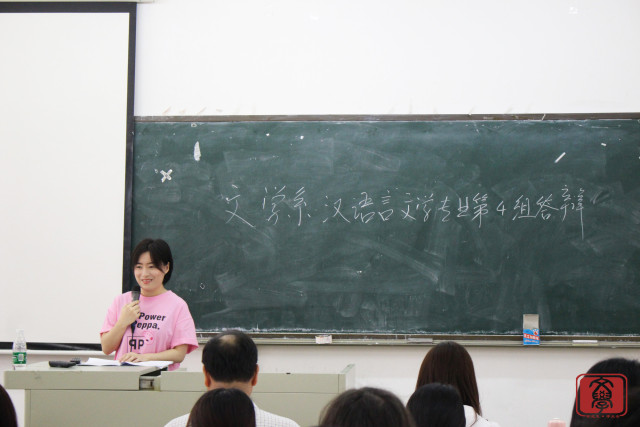 文学系汉语言文学专业第4组答辩
Power
eppa.
文學